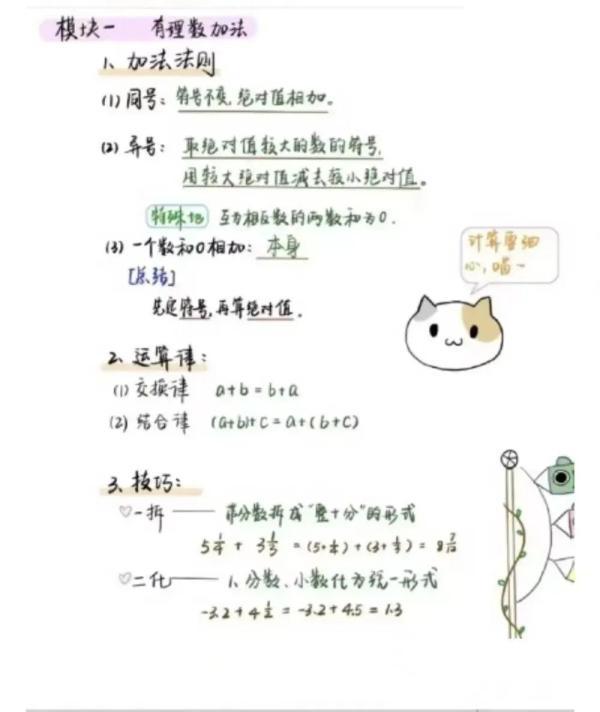 模块一 有理数加法
1、加法法则
(1) 同号：符号不变，绝对值相加。
(2) 异号：取绝对值较大的数的符号，
用较大绝对值减去较小绝对值。
特殊地 互为相反数的两数和为0.
(3) 一个数和0相加：本身
[总结]
先定符号，再算绝对值。
计算要细
心，喵~
2、运算律：
(1) 交换律 a+b=b+a
(2) 结合律 (a+b)+c=a+(b+c)
3、技巧：
♡一拆—— 带分数拆成"整+分"的形式
5 1/4 + 3 1/3 = (5+1/4)+(3+1/3) = 8 7/12
♡二化—— 1、分数、小数化为统一形式
-3.2+4 1/2 = -3.2+4.5=1.3